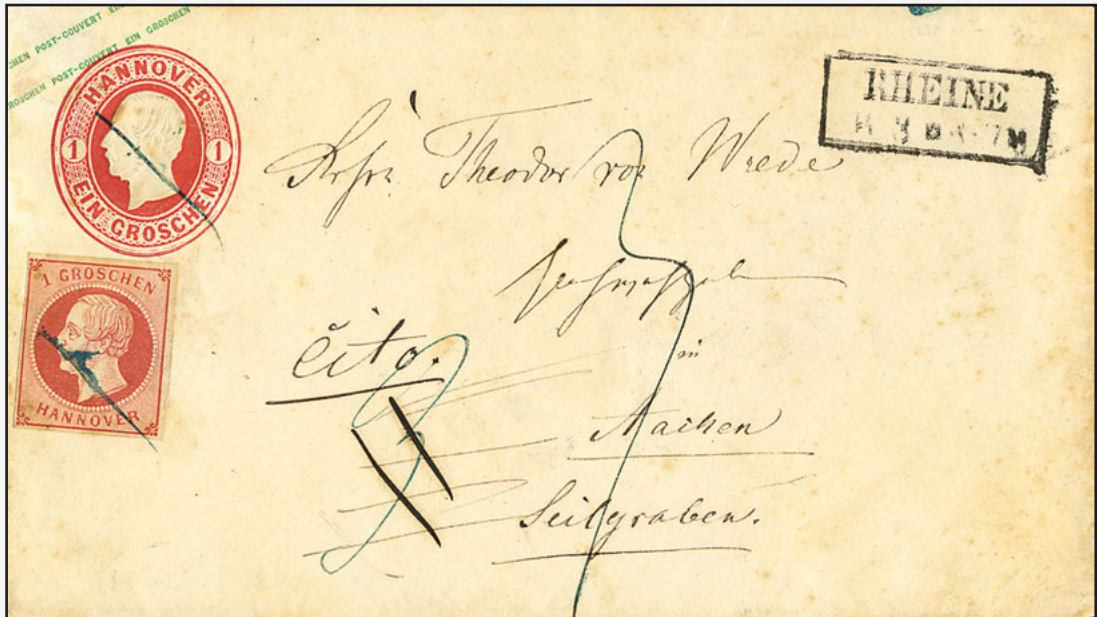 CHEN POST-COUVERT EIN
GROSCHEN POST-COUVERT EIN GROSCHEN
HANNOVER
1 1
EIN GROSCHEN
1 GROSCHEN
HANNOVER
RHEINE
Theodor von Wrede
Cito.
in
Aachen
Seilgraben.